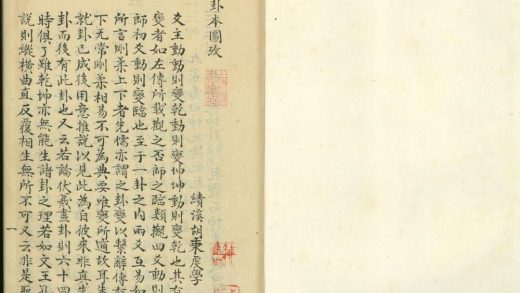 卦本圖攷
績溪胡秉虔學
爻主動動則變乾動則變坤坤動則變乾也其有
變者如左傳所載觀之否師之臨類觀四爻動則
師初爻動則變臨也至于一卦之內而又互易如
所言剛柔上下者先儒亦謂之卦變以繫辭傳有
下无常剛柔相易不可為典要唯變所適故耳朱
就卦已成後用意推說以見此為自彼來非真先
卦而後有此卦也又云若論伏羲畫卦則六十四
時俱了雖乾坤亦無能生諸卦之理若如文王孔
說則縱橫曲直反覆相生無所不可又云非是聖
一